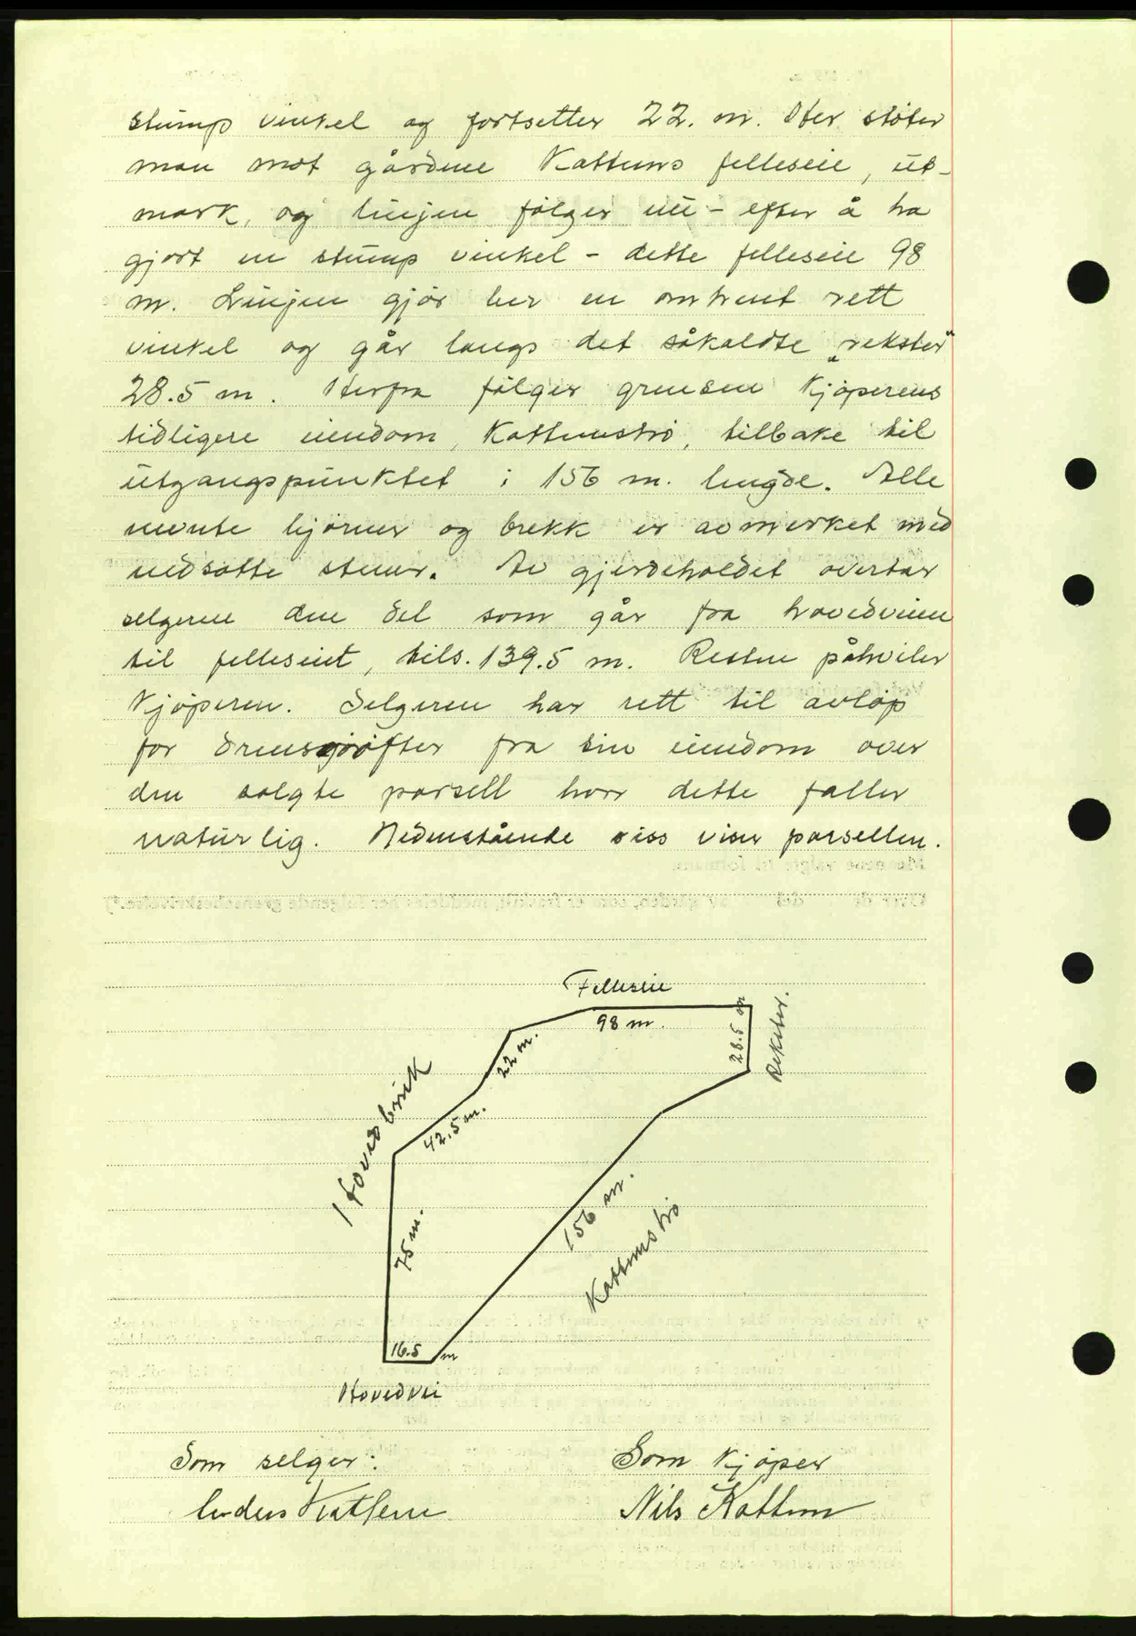 stump vinkel og fortsetter 22. m. Her støter
man mot gårdene Kattums felleseie, ut-
mark, og linjen følger nu - efter å ha
gjort en stump vinkel - dette felleseie 98
m. Linjen gjør her en omtrent rett
vinkel og går langs det såkaldte „rekster"
28.5 m. Herfra følger grensen kjøperens
tidligere eiendom, Kattumstrø, tilbake til
utgangspunktet i 156 m. lengde. Alle
nevnte hjørner og brekk er avmerket med
nedsatte stener. Av gjerdeholdet overtar
selgeren den del som går fra hovedveien
til felleseiet, tils. 139.5 m. Resten påhviler
kjøperen. Selgeren har rett til avløp
for drensgrøfter fra sin eiendom over
den solgte parsell hvor dette faller
naturlig. Nedenstående riss viser parsellen.
Felleseie
98 m.
28.5 m
Rekster.
22 m.
42.5 m.
Hovedbruk
75 m.
156 m.
Kattumstrø
16.5 m
Hovedvei
Som selger:
Som kjøper
Anders Kattem
Nils Kattum